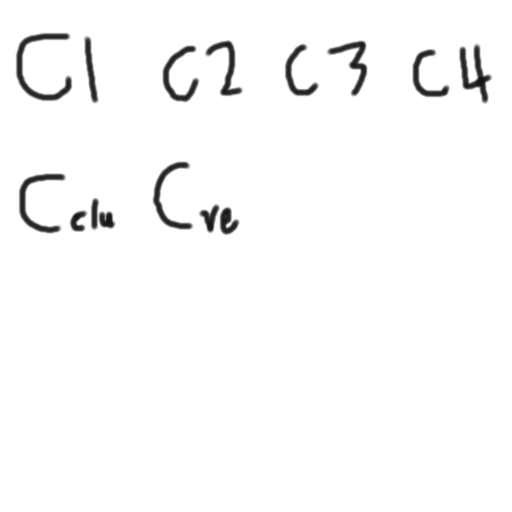 C1 C2 C3 C4
Cclu Cve